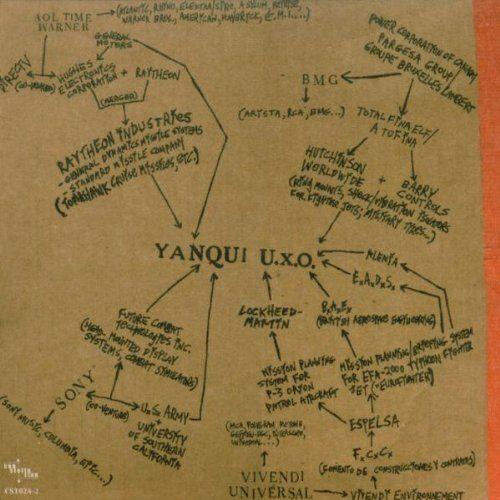 AOL TIME
WARNER
(ATLANTIC, RHINO, ELEKTRA/SIRE, ASYLUM, REPRISE,
WARNER BROS., AMERICAN, MAVERICK, E.M.I....)
GENERAL
MOTORS
DIRECTV
(CO-OWNED)
HUGHES
ELECTRONICS
CORPORATION
+ RAYTHEON
(MERGED)
RAYTHEON INDUSTRIES
-GENERAL DYNAMICS MISSILE SYSTEMS
-STANDARD MISSILE COMPANY
(TOMAHAWK CRUISE MISSILES, ETC.)
POWER CORPORATION OF CANADA
PARGESA GROUP/
GROUPE BRUXELLES LAMBERT
BMG
(ARISTA, RCA, BMG...)
TOTAL FINA ELF/
ATOFINA
HUTCHINSON
WORLDWIDE
+ BARRY
CONTROLS
FOR FIGHTER JETS; MILITARY TIRES...)
YANQUI U.X.O.
ALENIA
E.A.D.S.
B.A.E.
(BRITISH AEROSPACE ENGINEERING)
LOCKHEED-
MARTIN
FUTURE COMBAT
TECHNOLOGIES INC.
(HEAD-MOUNTED DISPLAY
SYSTEMS, COMBAT SIMULATING)
SONY
(SONY MUSIC, COLUMBIA, EPIC...)
(CO-VENTURE)
U.S. ARMY
+
UNIVERSITY
OF SOUTHERN
CALIFORNIA
MISSION PLANNING
SYSTEM FOR
P-3 ORION
PATROL AIRCRAFT
MISSION PLANNING
FOR EFA-2000
JET ("EUROFIGHTER")
SYSTEM
TYPHOON FIGHTER
ESPELSA
F.C.C.
(FOMENTO DE CONSTRUCCIONES Y CONTRATAS)
(MCA, POLYGRAM, MOTOWN,
GEFFEN-DGC, INTERSCOPE,
UNIVERSAL...)
VIVENDI
UNIVERSAL
VIVENDI ENVIRONNEMENT
CST024-2